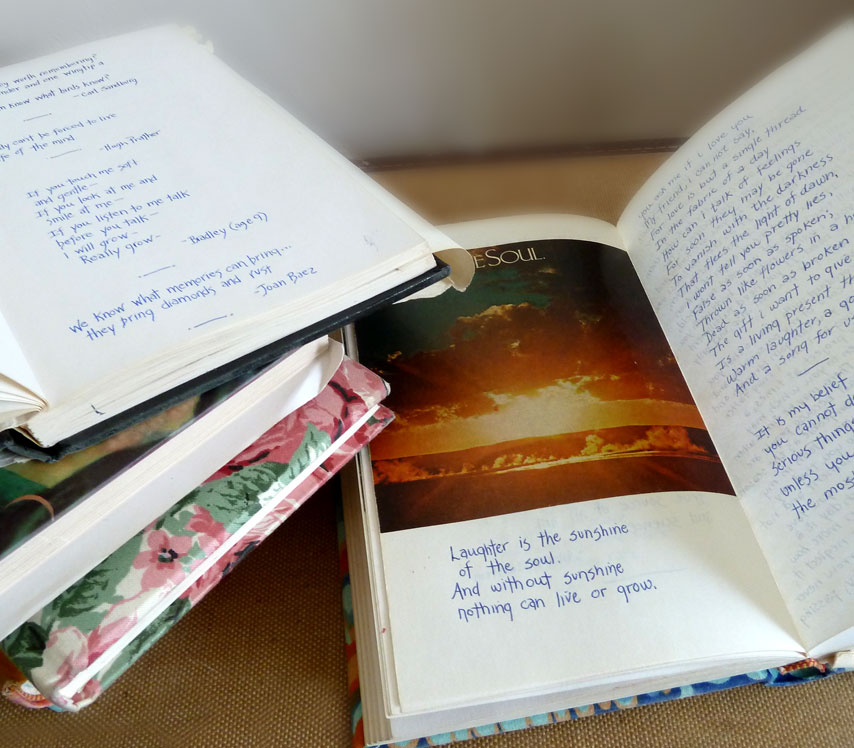 ey worth remembering?
nder and one wingtip a
n know what birds know?
- Carl Sandburg
dy can't be forced to live
of the mind
- Hugh Prather
If you touch me soft
and gentle -
If you look at me and
Smile at me -
If you listen to me talk
before you talk -
I will grow -
Really grow -
- Bradley (age 9)
We know what memories can bring...
they bring diamonds and rust
Joan Baez
E SOUL
Laughter is the sunshine
of the soul.
And without sunshine
nothing can live or grow.
you ask me if i love you
My friend, i can not say,
For love is but a single thread
In the fabric of a day
How can i talk of feelings
For soon they may be gone
To vanish with the darkness
That flees the light of dawn,
I won't tell you pretty lies;
False as soon as spoken;
Thrown like flowers in a h
Dead as soon as broken
The gift i want to give
Is a living present th
Warm laughter, a go
And a song for u
It is my belief
you cannot d
serious things
unless you
the mos